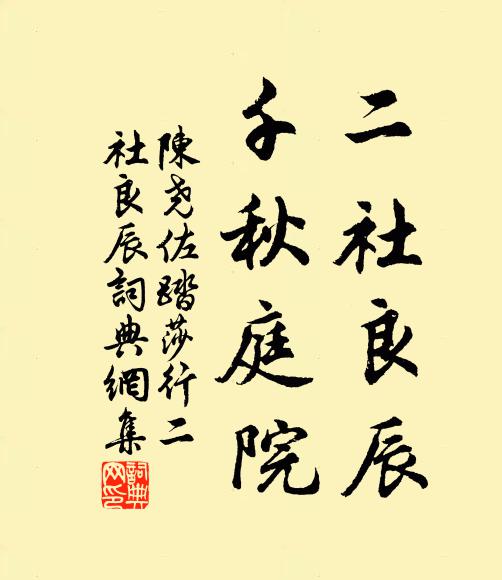 二社良辰
千秋庭院
陳尧佐踏莎行二
社良辰詞典網集
詞典
网印